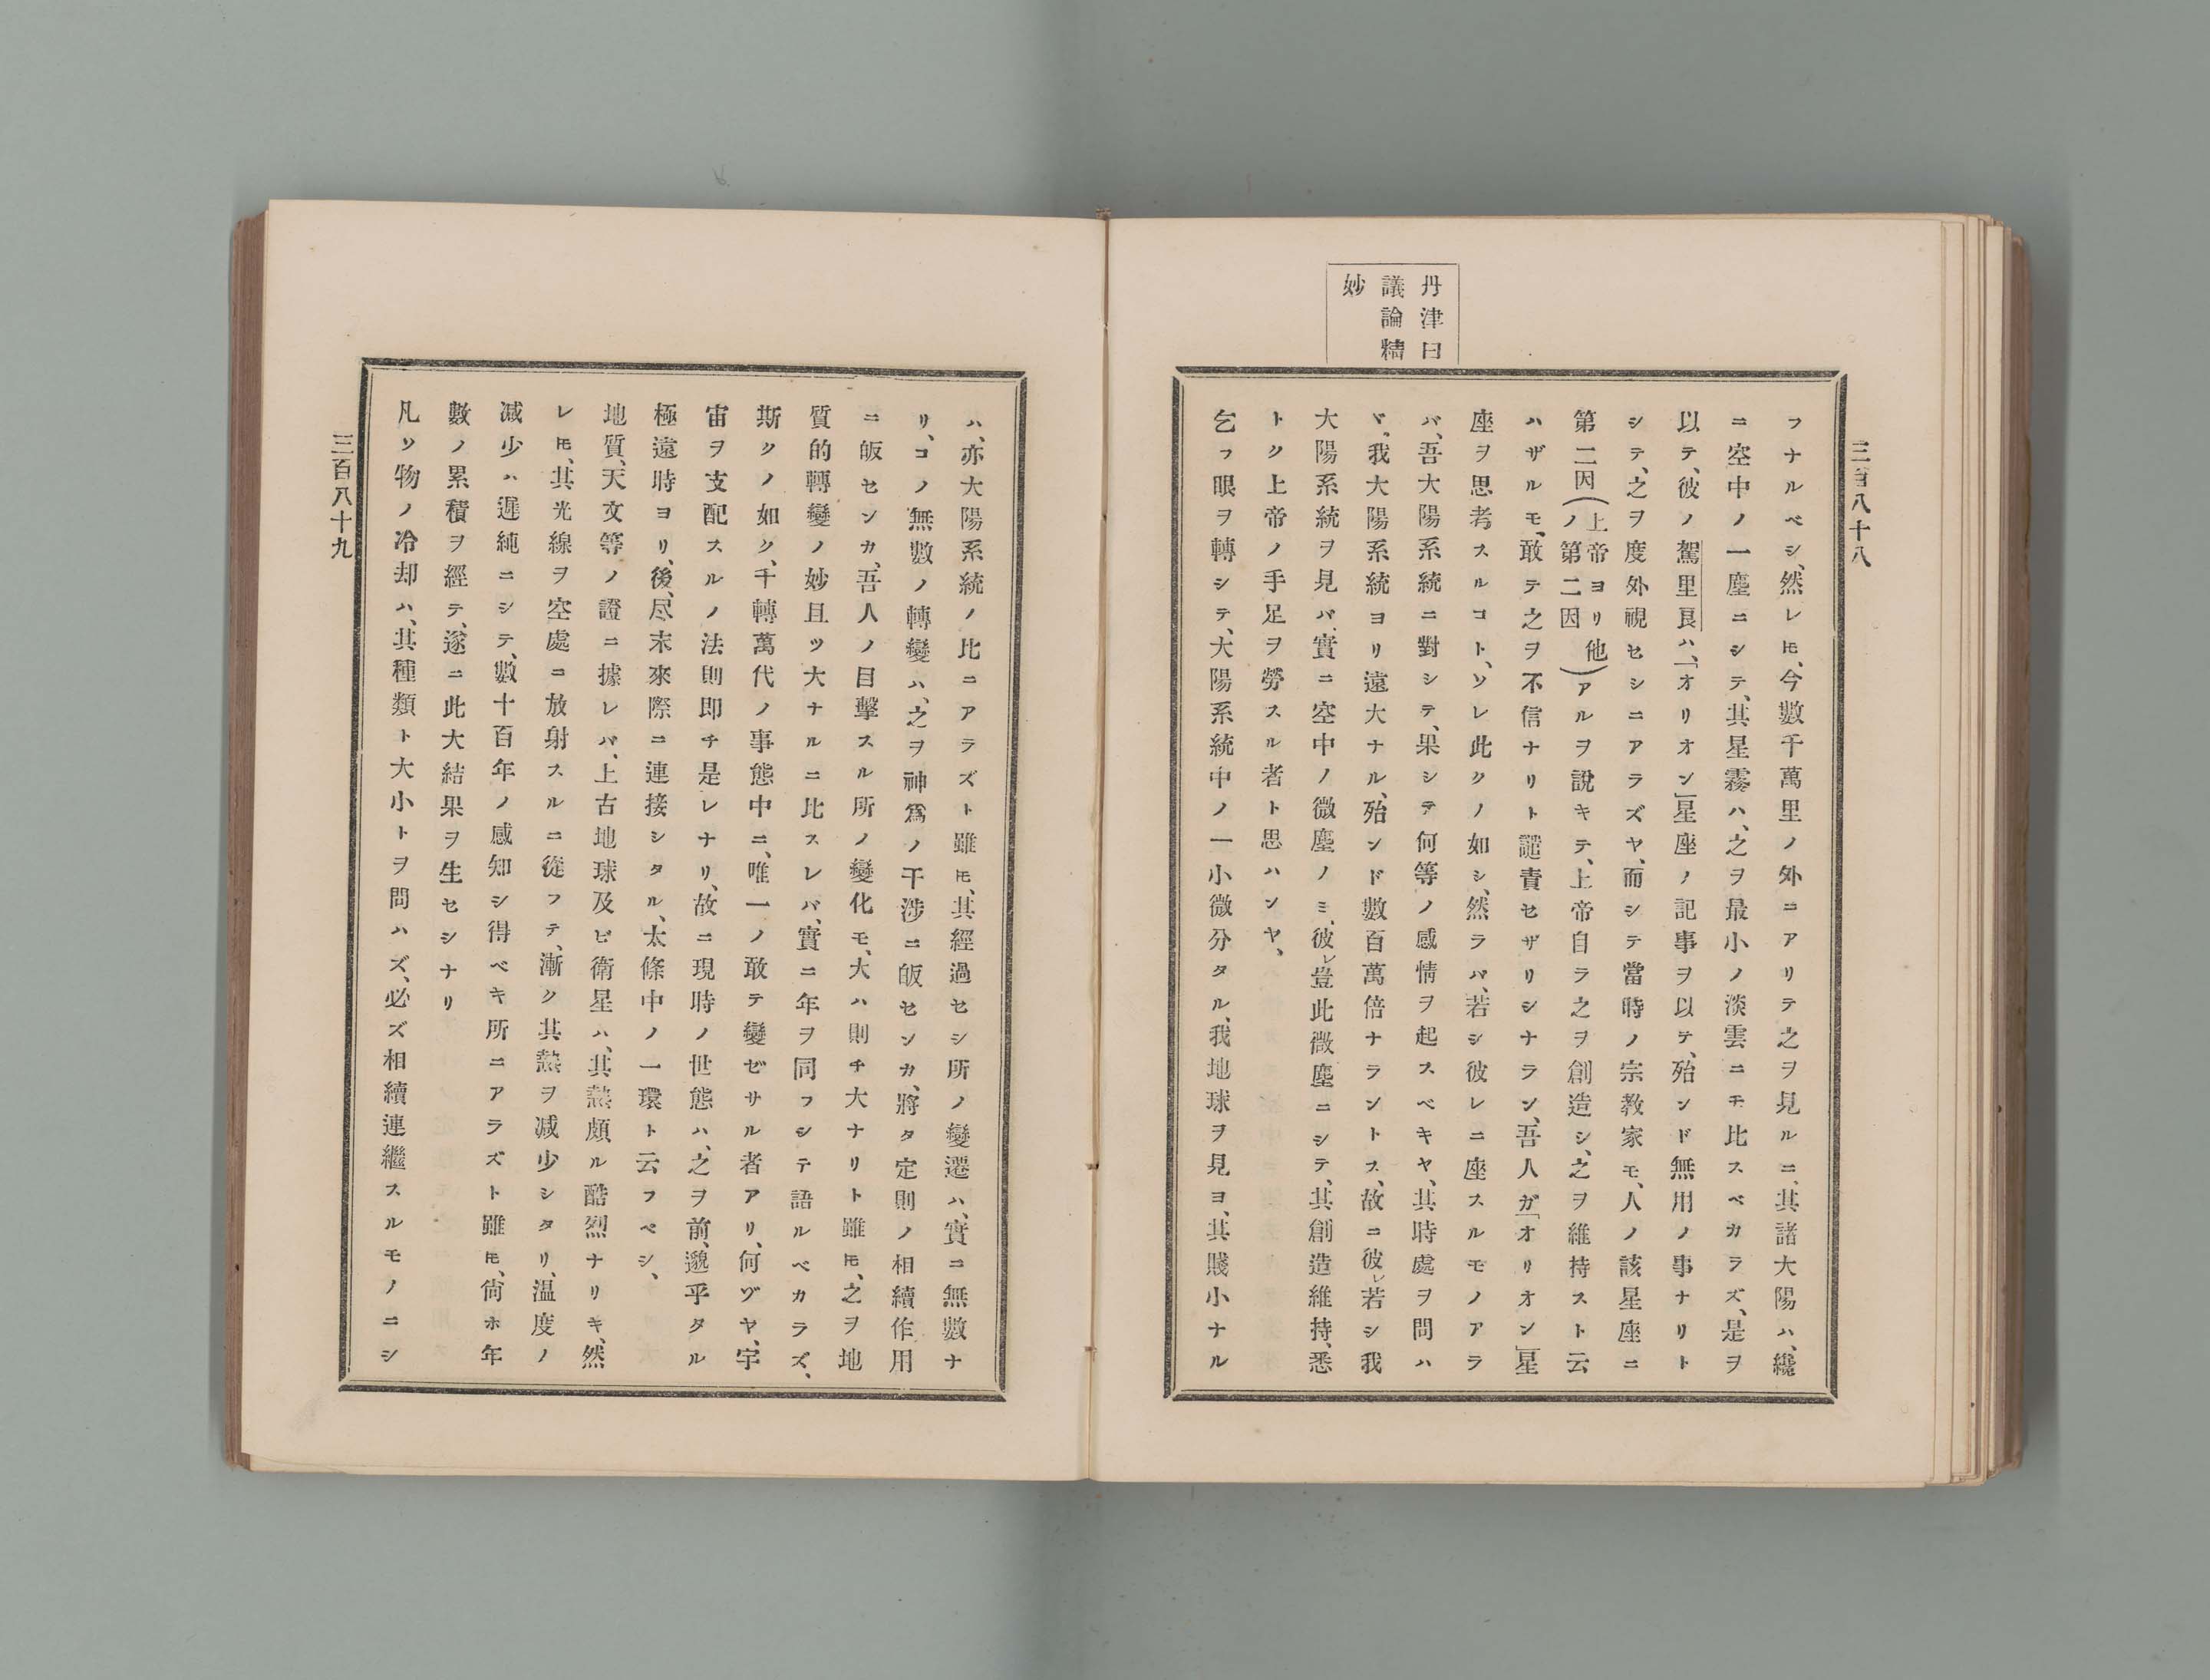 三百八十八
丹津曰
議論精
妙
フナルベシ、然レ𪜈、今數千萬里ノ外ニアリテ之ヲ見ルニ、其諸大陽ハ、纔
ニ空中ノ一塵ニシテ、其星霧ハ、之ヲ最小ノ淡雲ニモ比スベカラズ、是ヲ
以テ、彼ノ駕里良ハ、「オリオン」星座ノ記事ヲ以テ、殆ンド無用ノ事ナリト
シテ、之ヲ度外視セシニアラズヤ、而シテ當時ノ宗教家モ、人ノ該星座ニ
第二因(上帝ヨリ他ノ第二因)アルヲ說キテ、上帝自ラ之ヲ創造シ、之ヲ維持スト云
ハザルモ、敢テ之ヲ不信ナリト譴責セザリシナラン、吾人ガ「オリオン」星
座ヲ思考スルコト、ソレ此クノ如シ、然ラバ、若シ彼レニ座スルモノアラ
バ、吾大陽系統ニ對シテ、果シテ何等ノ感情ヲ起スベキヤ、其時處ヲ問ハ
ヾ、我大陽系統ヨリ遠大ナル、殆ンド數百萬倍ナラントス、故ニ彼レ若シ我
大陽系統ヲ見バ、實ニ空中ノ微塵ノミ、彼レ豈此微塵ニシテ、其創造維持、悉
トク上帝ノ手足ヲ勞スル者ト思ハンヤ、
乞フ眼ヲ轉シテ、大陽系統中ノ一小微分タル、我地球ヲ見ヨ、其賤小ナル
ハ、亦大陽系統ノ比ニアラズト雖𪜈、其經過セシ所ノ變遷ハ、實ニ無數ナ
リ、コノ無數ノ轉變ハ、之ヲ神爲ノ干涉ニ皈センカ、將タ定則ノ相續作用
ニ皈センカ、吾人ノ目擊スル所ノ變化モ、大ハ則チ大ナリト雖𪜈、之ヲ地
質的轉變ノ妙且ツ大ナルニ比スレバ、實ニ年ヲ同フシテ語ルベカラズ、
斯クノ如ク、千轉萬代ノ事態中ニ、唯一ノ敢テ變ゼサル者アリ、何ヅヤ、宇
宙ヲ支配スルノ法則即チ是レナリ、故ニ現時ノ世態ハ、之ヲ前、邈乎タル
極遠時ヨリ、後、尽末來際ニ連接シタル、太條中ノ一環ト云フベシ、
地質、天文等ノ證ニ據レバ、上古地球及ビ衛星ハ、其熱頗ル酷烈ナリキ、然
レ𪜈、其光線ヲ空處ニ放射スルニ從フテ、漸ク其熱ヲ减少シタリ、温度ノ
减少ハ遲純ニシテ、數十百年ノ感知シ得ベキ所ニアラズト雖𪜈、尙ホ年
數ノ累積ヲ經テ、遂ニ此大結果ヲ生セシナリ
凡ソ物ノ冷却ハ、其種類ト大小トヲ問ハズ、必ズ相續連繼スルモノニシ
三百八十九